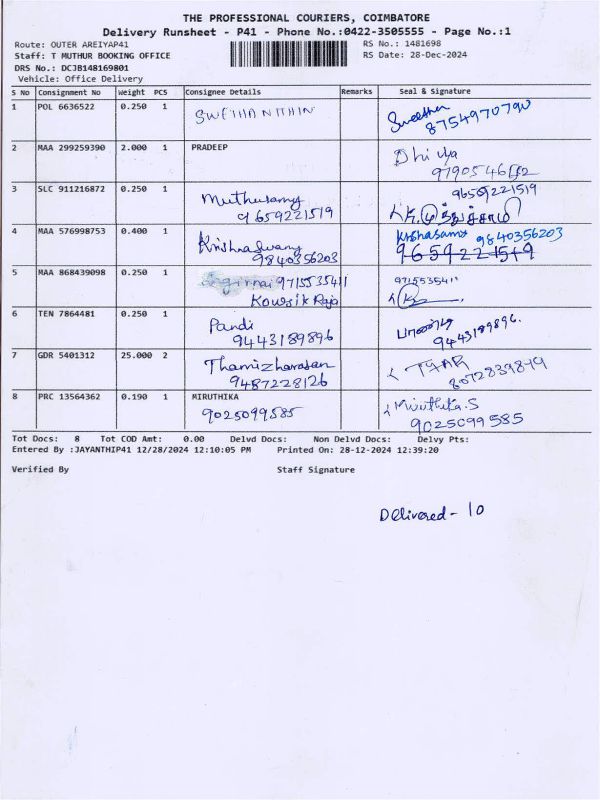 THE PROFESSIONAL COURIERS, COIMBATORE
Delivery Runsheet - P41 - Phone No.:0422-3505555 - Page No.:1
Route: OUTER AREIYAP41 RS No.: 1481698
Staff: T MUTHUR BOOKING OFFICE RS Date: 28-Dec-2024
DRS No.: DCJB148169801
Vehicle: Office Delivery
S No Consignment No Weight PCS Consignee Details Remarks Seal & Signature
1 POL 6636522 0.250 1 SWETHA NITHIN Swetha
8754970790
2 MAA 299259390 2.000 1 PRADEEP Dhivya
3 SLC 911216872 0.250 1 Muthusamy 9659221519
9659221519 முத்துச்சாமி
4 MAA 576998753 0.400 1 Krishnaswamy Krishasamy 9840356203
9840356203 9659221519
5 MAA 868439098 0.250 1 9715535411 9715535411
Kowsik Raja
6 TEN 7864481 0.250 1 Pandi
9443189896 9443189896.
7 GDR 5401312 25.000 2 Thamizharasan
9487228126 8072839849
8 PRC 13564362 0.190 1 MIRUTHIKA Miruthika.S
9025099585 9025099585
Tot Docs: 8 Tot COD Amt: 0.00 Delvd Docs: Non Delvd Docs: Delvy Pts:
Entered By :JAYANTHIP41 12/28/2024 12:10:05 PM Printed On: 28-12-2024 12:39:20
Verified By Staff Signature
Delivered - 10